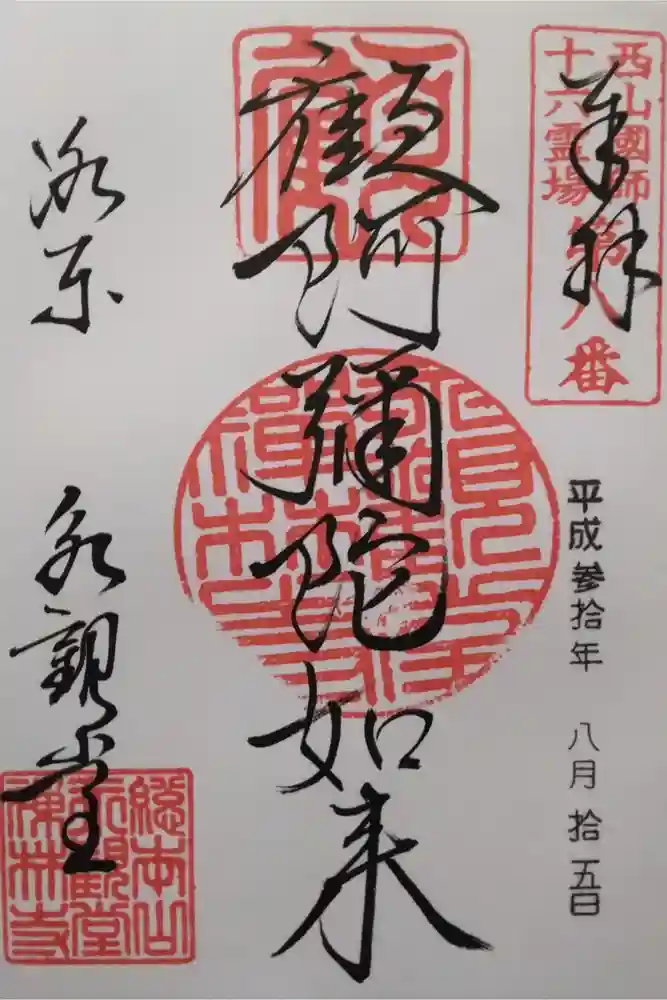 奉拝
西山國師
十六霊場
第八番
平成参拾年 八月拾五日
顧阿彌陀如来
洛东
永観堂
総本山
永観堂
禅林寺